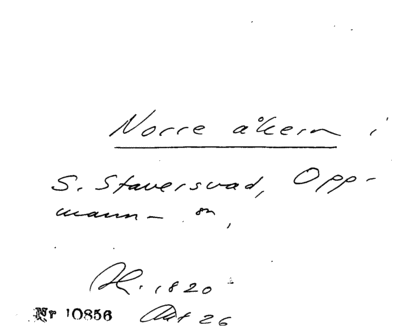 Norre åkern i
S. Staversvad, Opp-
mann- sn,
Sk. 1820
Nr 10856 Akt 26